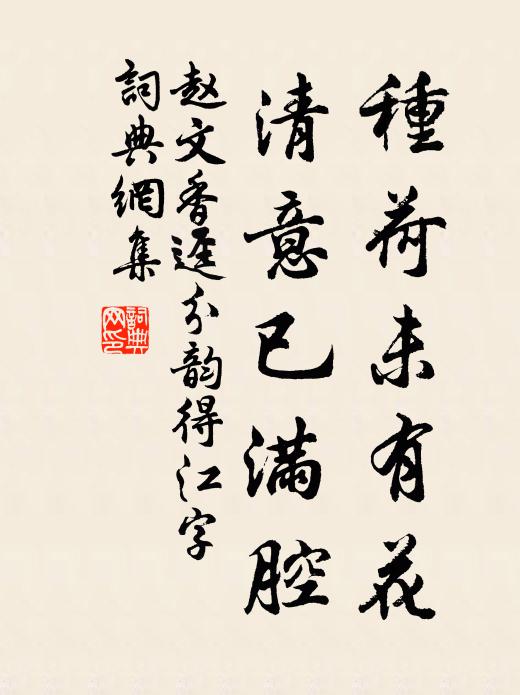 種荷未有花
清意已滿腔
赵文香遅分韵得江字
詞典網集
詞典网印